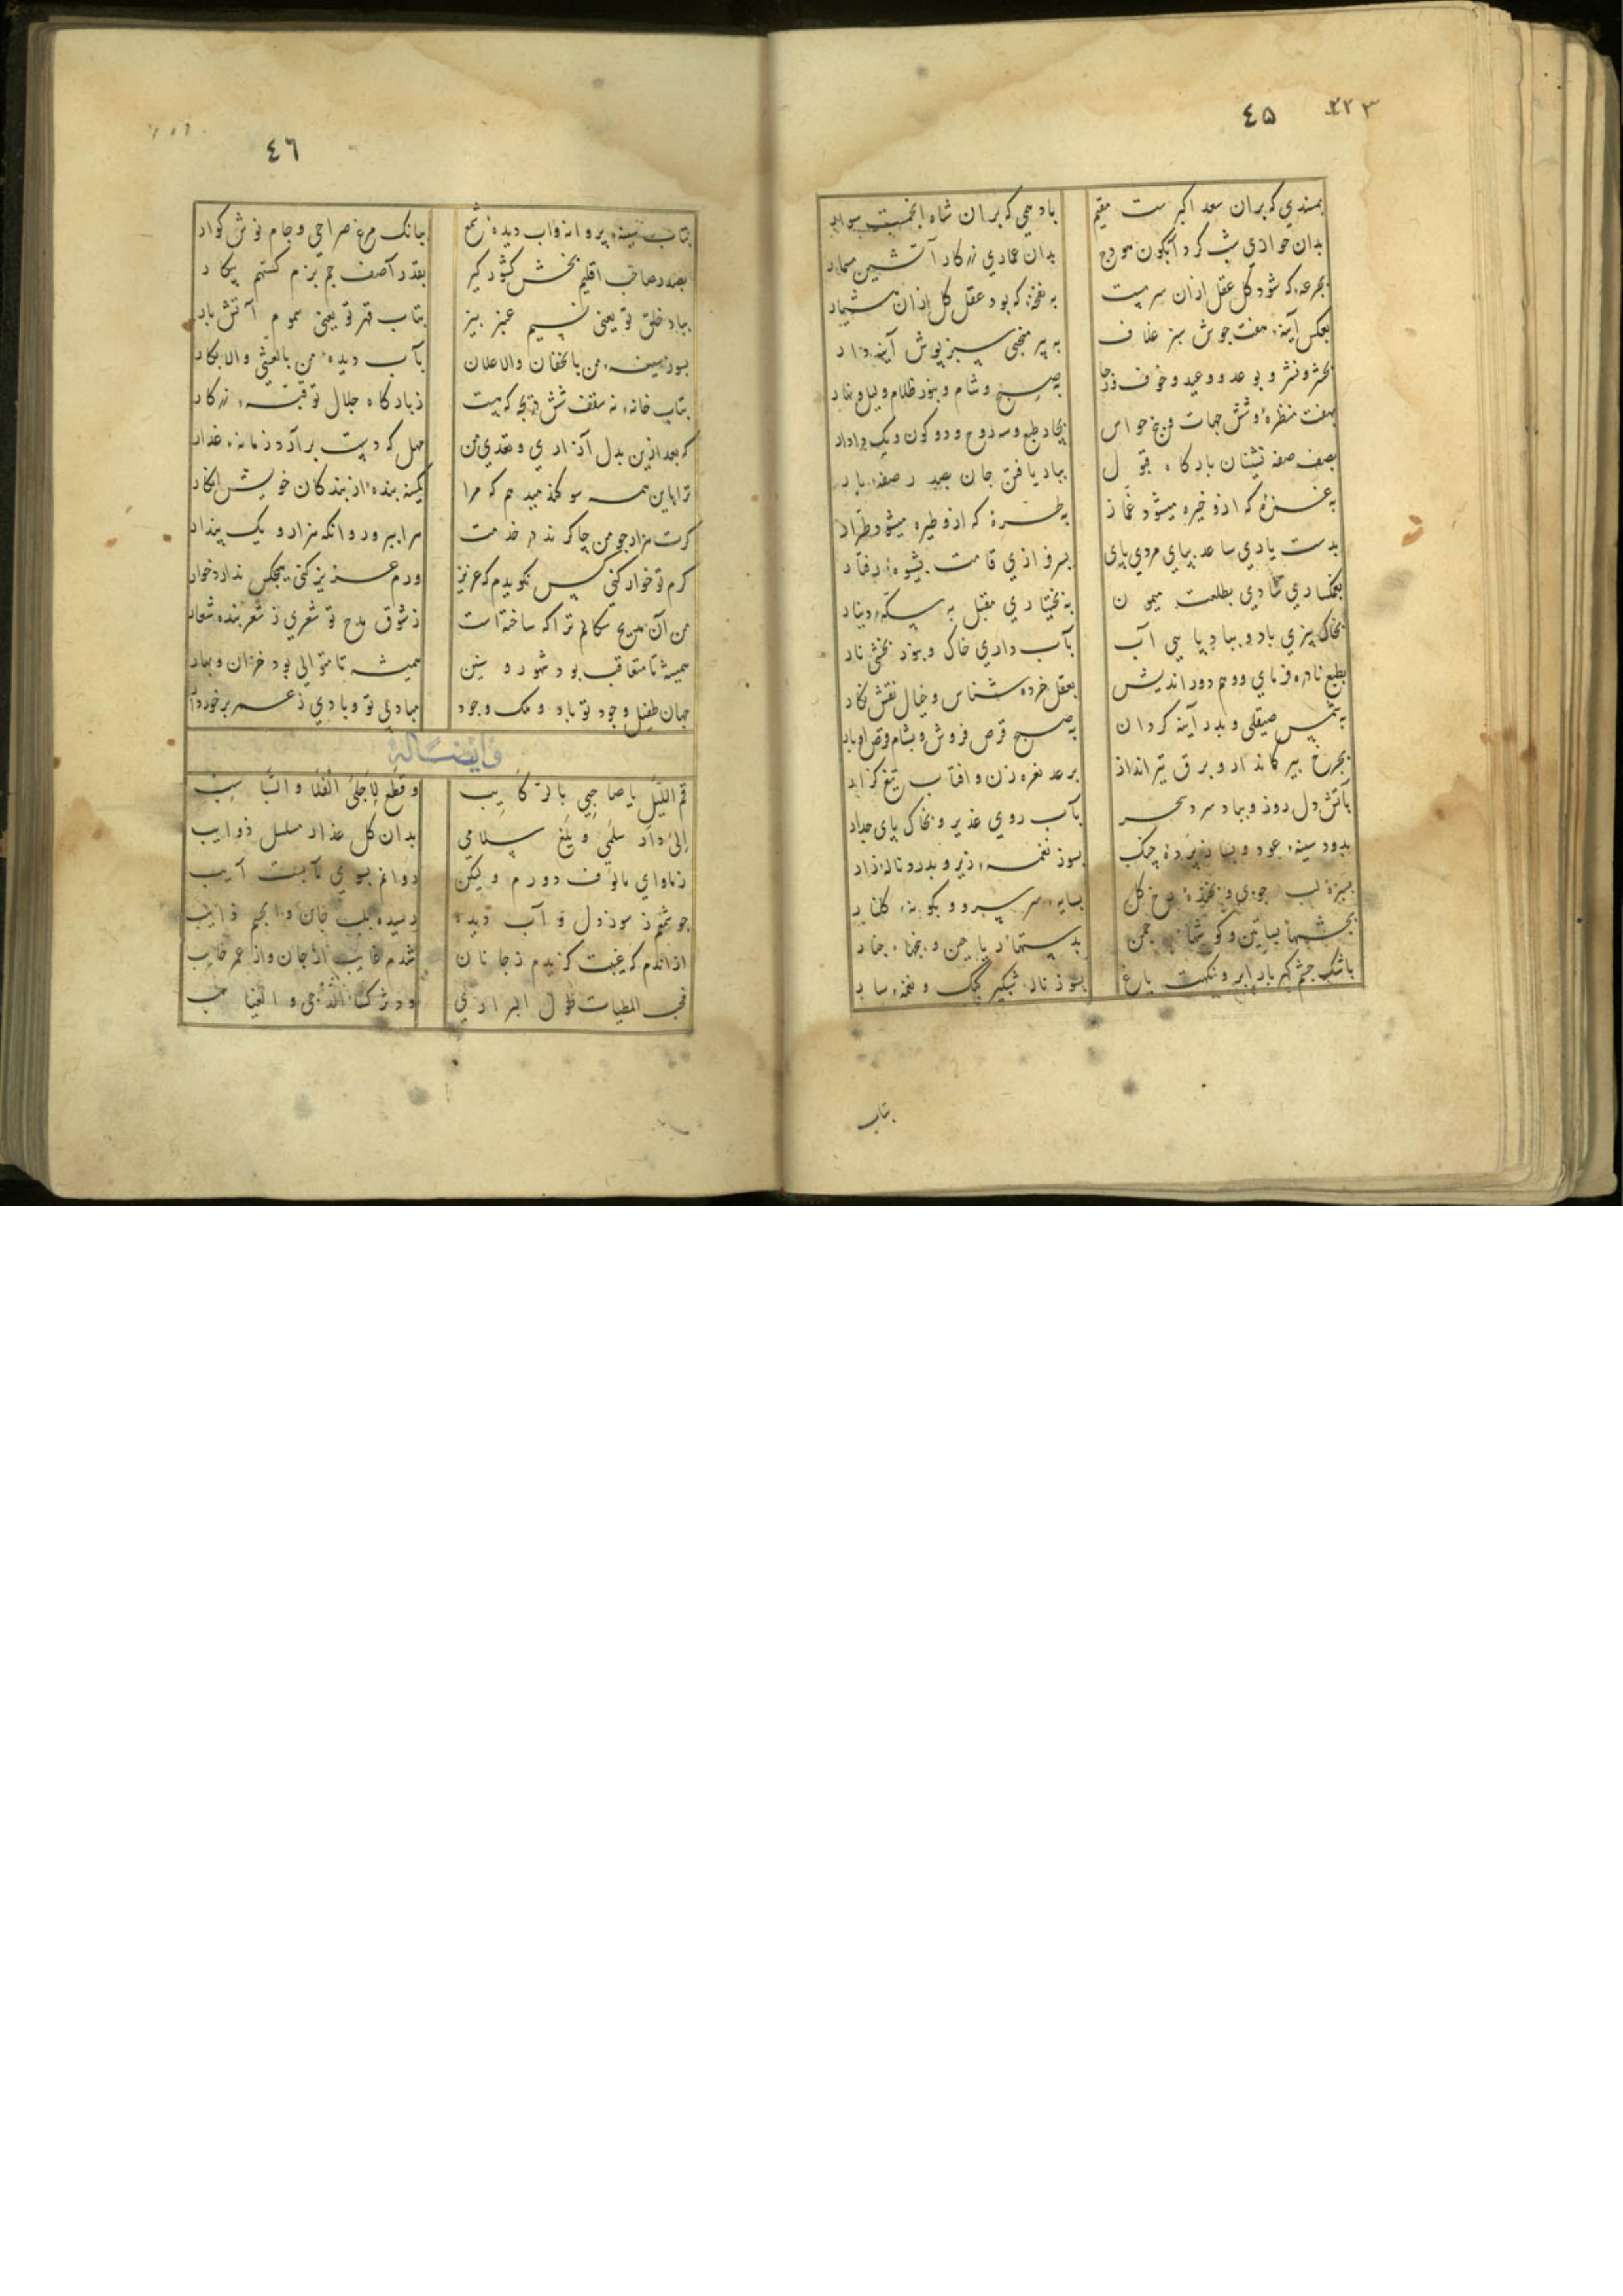 ٢٢٣
٤٥
بمسندي که بران سعد اکبر ست مقیم
باد همي که بران شاه انجمست سوار
بدان عماري زرکار آتشین مسمار
بجرعهٔ که شود کل عقل ازان سرمست
به نفخهٔ که بود عقل کل ازان هشیار
بعکس آینهٔ هفت جوش سبز غلاف
به پیر منحني سبزپوش آینه دار
بحشر و نشر و بوعد و وعید و خوف و رجا
به صبح و شام و بنور و ظلام و لیل و نهار
بهفت منظره و شش جهات و پنج حواس
بچار طبع و سه روح و دو کون و یک دادار
بصف صفه نشینان بارکاه قبول
بباد یافتن جان بصدر صفهٔ بار
به غمزهٔ که ازو خیره میشود غماز
به طرهٔ که ازو طیره میشود طرار
بدست یاري ساعد بپاي مردي پاي
بسرفرازي قامت بشیوهٔ رفتار
بغمکساري شادي بطلعت میمون
به بختیاري مقبل به سکهٔ دینار
بخاک پیزي باد و بباد پایي آب
بآب داري خاک و بنور بخشي نار
بطبع نادره فرماي و وهم دور اندیش
بعقل خرده شناس و خیال نقش نکار
به شمس صیقلي و بدر آینه کردان
به صبح قرص فروش و بشام
بچرخ پیر کماندار و برق تیرانداز
برعد نعره زن و افتاب تیغ کزار
بآتش دل روز و بباد سرد سحر
بآب روي غدیر و بخاک پاي جدار
بدود سینهٔ عود و چنک
بسوز نغمهٔ زیر و بدرد نالهٔ زار
بسبزهٔ لب جوي و بخندهٔ رخ کل
بسایهٔ سر سرو و بکونهٔ کلنار
بچشمهاي بساتین و کوشهاي چمن
باشک چشم کهربار ابر و نکهت باغ
بسوز نالهٔ شبکیر کبک و نغمهٔ سار
بتاب
٤٦
بتاب سینهٔ پروانه و آب دیدهٔ شمع
ببانک مرغ صراحي و جام نوش کوار
بصدر صاحب اقلیم بخش کشور کیر
بقدر آصف جم بزم کستهم پیکار
بباد خلق تو یعني نسیم عنبر بیز
بتاب قهر تو یعني سموم آتش بار
بسوز سینهٔ من بالخفان والاعلان
بآب دیدهٔ من بالعشي والابکار
بتاب خانهٔ نه سقف شش دریچه که هست
ز بارکاه جلال تو قبهٔ زرکار
که بعد ازین بدل آزاري و تعدي من
مهل که دست برآرد زمانهٔ غدار
ترا باین همه سوکند میدهم که مرا
کمینه بندهٔ از بندکان خویش انکار
کرت هزار چو من چاکرند در خدمت
مرا بپرور و انکه هزار و یک پندار
کرم تو خوار کني کس نکویدم که عزیز
ورم عزیز کني هیچکس ندارد خوار
من آن مدیح سکالم ترا که ساختهٔ است
ز شوق مدح تو شعري ز شعر بنده شعار
همیشه تا متعاقب بود شهور و سنین
همیشه تا متوالي بود خزان و بهار
جهان طفیل وجود تو باد و ملک وجود
مباد بي تو و بادي ز عمر برخوردار
وایضاً له
قم اللیل یا صاحبي بالرکایب
و قطع لاجلي الفلا والسباسب
الی دار سلمي و بلغ سلامي
بدان کل عذار مسلسل ذوایب
ز ماواي مالوف دورم ولیکن
چو شمعم ز سوز دل و آب دیده
رسیده بلب جان و جسم ذایب
ازاندم که غیبت کزیدم ز جانان
شدم غایب از جان و از عمر خایب
فجب المطیات طول البراري
ودر کالدجي و الغیاهب